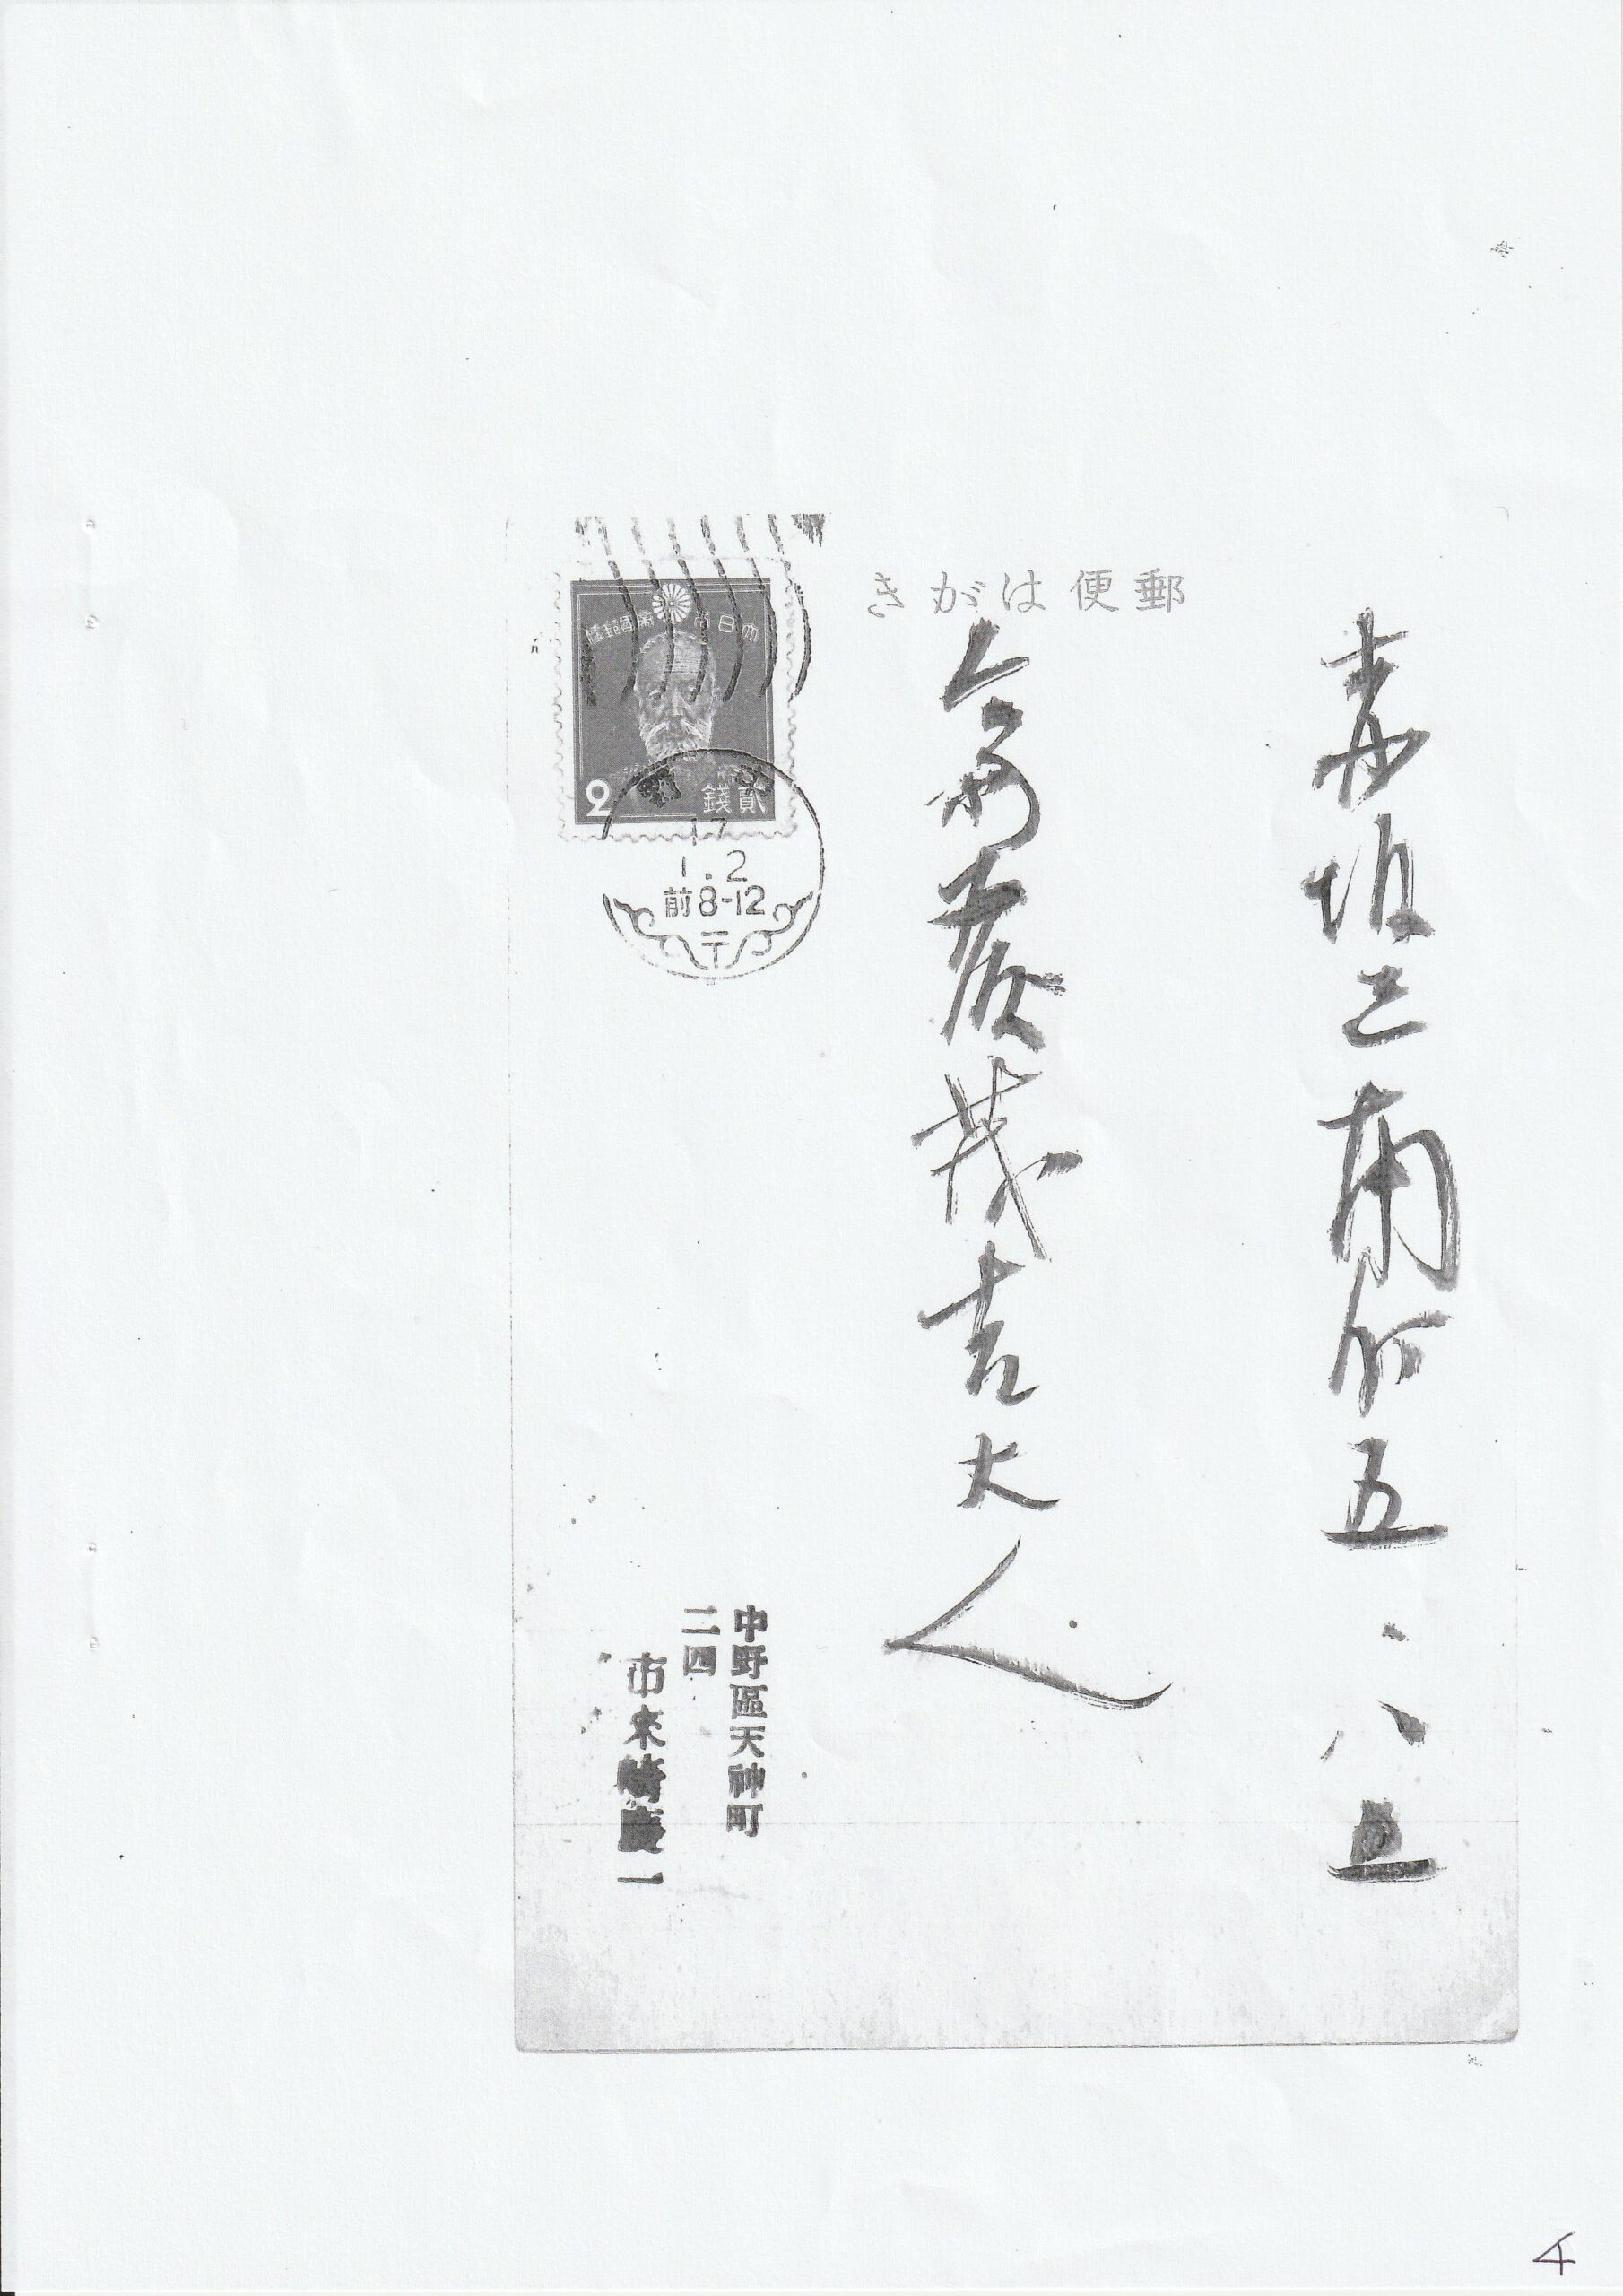 郵便はがき
赤坂区南町五、八五
斎藤茂吉大人
大日本帝國郵便
貳錢
2
17
1.2
前8-12
〒
中野區天神町
二四
市来崎慶一
4